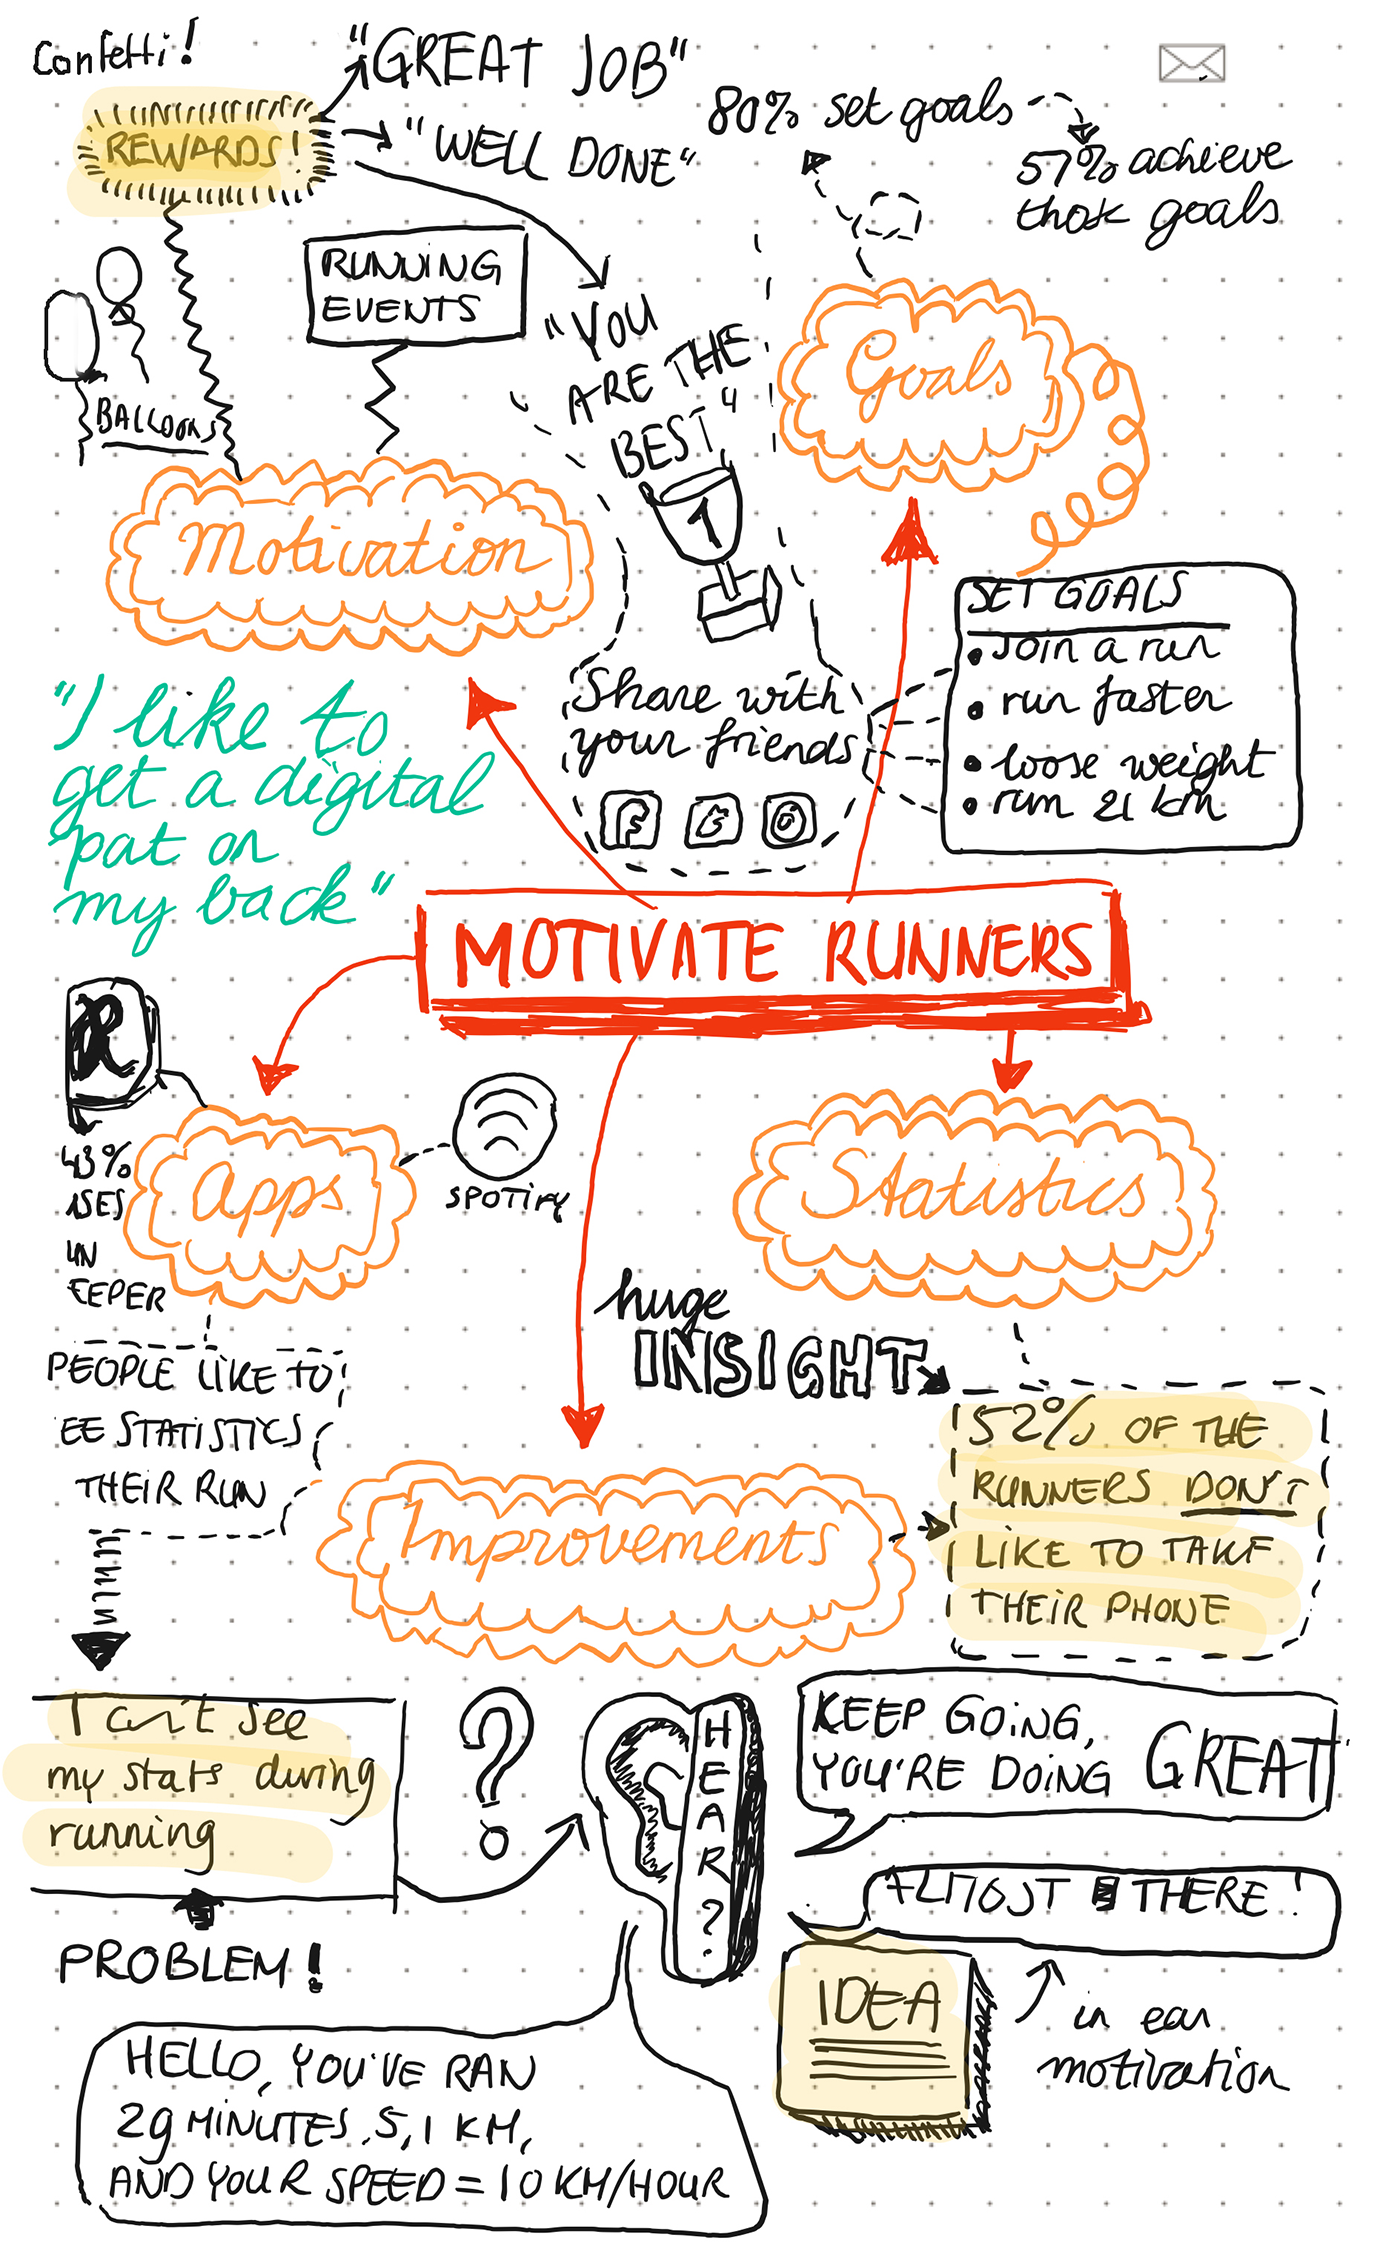 Confetti!
"GREAT JOB"
REWARDS!
"WELL DONE"
80% set goals
57% achieve
goals
RUNNING
EVENTS
"YOU
ARE THE
BEST"
1
BALLOONS
Goals
Motivation
SET GOALS
• Join a run
• run faster
• loose weight
• run 21 km
Share with
your friends
F G
"I like to
get a digital
pat on
my back"
MOTIVATE RUNNERS
R
43%
apps
SPOTIFY
Statistics
EEPER
huge
INSIGHT
PEOPLE LIKE TO
EE STATISTICS
THEIR RUN
52% OF THE
RUNNERS DON'T
LIKE TO TAKE
THEIR PHONE
Improvements
I can't see
my stats during
running
?
HEAR?
KEEP GOING,
YOU'RE DOING GREAT
ALMOST THERE!
PROBLEM!
IDEA
in ear
motivation
HELLO, YOU'VE RAN
29 MINUTES, 5,1 KM,
AND YOUR SPEED = 10 KM/HOUR